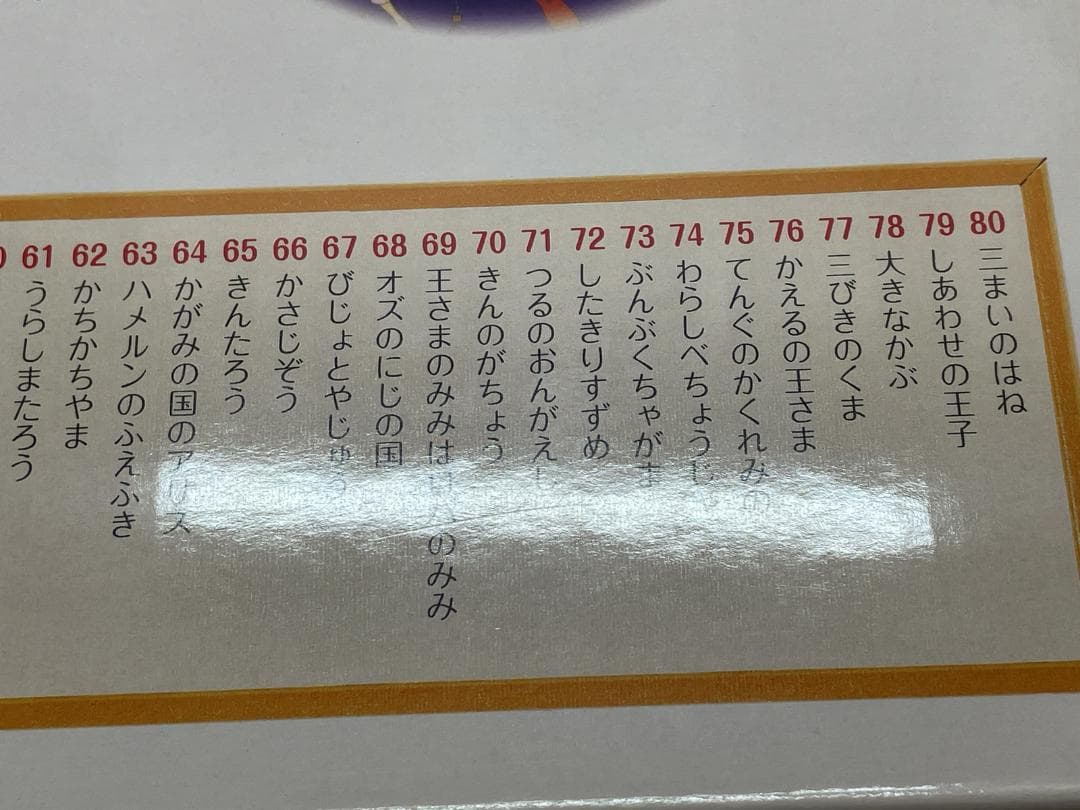 61 うらしまたろう
62 かちかちやま
63 ハメルンのふえふき
64 かがみの国のアリス
65 きんたろう
66 かさじぞう
67 びじょとやじゅう
68 オズのにじの国
69 王さまのみみはロバのみみ
70 きんのがちょう
71 つるのおんがえし
72 したきりすずめ
73 ぶんぶくちゃがま
74 わらしべちょうじゃ
75 てんぐのかくれみの
76 かえるの王さま
77 三びきのくま
78 大きなかぶ
79 しあわせの王子
80 三まいのはね